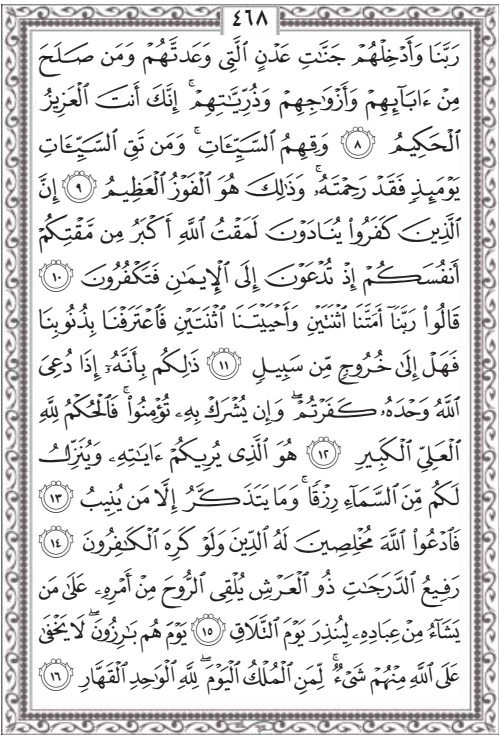 ٤٦٨
رَبَّنَا وَأَدْخِلْهُمْ جَنَّٰتِ عَدْنٍ ٱلَّتِى وَعَدتَّهُمْ وَمَن صَلَحَ
مِنْ ءَابَآئِهِمْ وَأَزْوَٰجِهِمْ وَذُرِّيَّٰتِهِمْ ۚ إِنَّكَ أَنتَ ٱلْعَزِيزُ
ٱلْحَكِيمُ ٨ وَقِهِمُ ٱلسَّيِّـَٔاتِ ۚ وَمَن تَقِ ٱلسَّيِّـَٔاتِ
يَوْمَئِذٍ فَقَدْ رَحِمْتَهُۥ ۚ وَذَٰلِكَ هُوَ ٱلْفَوْزُ ٱلْعَظِيمُ ٩ إِنَّ
ٱلَّذِينَ كَفَرُوا۟ يُنَادَوْنَ لَمَقْتُ ٱللَّهِ أَكْبَرُ مِن مَّقْتِكُمْ
أَنفُسَكُمْ إِذْ تُدْعَوْنَ إِلَى ٱلْإِيمَٰنِ فَتَكْفُرُونَ ١٠
قَالُوا۟ رَبَّنَآ أَمَتَّنَا ٱثْنَتَيْنِ وَأَحْيَيْتَنَا ٱثْنَتَيْنِ فَٱعْتَرَفْنَا بِذُنُوبِنَا
فَهَلْ إِلَىٰ خُرُوجٍ مِّن سَبِيلٍ ١١ ذَٰلِكُم بِأَنَّهُۥٓ إِذَا دُعِىَ
ٱللَّهُ وَحْدَهُۥ كَفَرْتُمْ ۖ وَإِن يُشْرَكْ بِهِۦ تُؤْمِنُوا۟ ۚ فَٱلْحُكْمُ لِلَّهِ
ٱلْعَلِىِّ ٱلْكَبِيرِ ١٢ هُوَ ٱلَّذِى يُرِيكُمْ ءَايَٰتِهِۦ وَيُنَزِّلُ
لَكُم مِّنَ ٱلسَّمَآءِ رِزْقًا ۚ وَمَا يَتَذَكَّرُ إِلَّا مَن يُنِيبُ ١٣
فَٱدْعُوا۟ ٱللَّهَ مُخْلِصِينَ لَهُ ٱلدِّينَ وَلَوْ كَرِهَ ٱلْكَٰفِرُونَ ١٤
رَفِيعُ ٱلدَّرَجَٰتِ ذُو ٱلْعَرْشِ يُلْقِى ٱلرُّوحَ مِنْ أَمْرِهِۦ عَلَىٰ مَن
يَشَآءُ مِنْ عِبَادِهِۦ لِيُنذِرَ يَوْمَ ٱلتَّلَاقِ ١٥ يَوْمَ هُم بَٰرِزُونَ ۖ لَا يَخْفَىٰ
عَلَى ٱللَّهِ مِنْهُمْ شَىْءٌ ۚ لِّمَنِ ٱلْمُلْكُ ٱلْيَوْمَ ۖ لِلَّهِ ٱلْوَٰحِدِ ٱلْقَهَّارِ ١٦